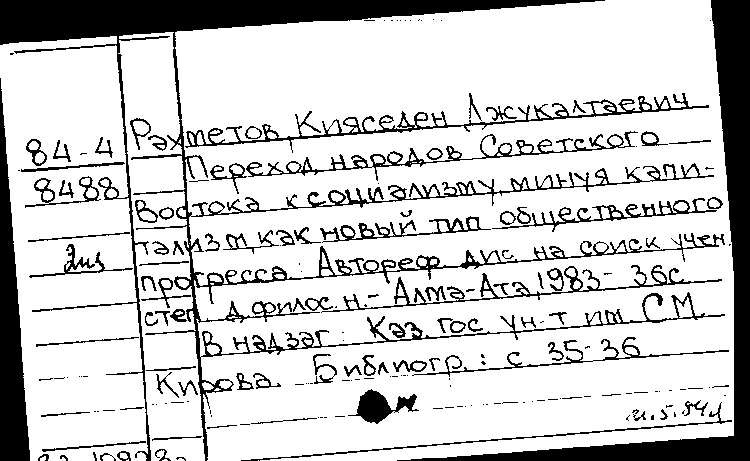 Рахметов, Кияседен Джукалтаевич
84-4
8488
Переход народов Советского
Востока к социализму, минуя капи-
тализм, как новый тип общественного
прогресса: Автореф. дис. на соиск. учен.
степ. д. филос. н. - Алма-Ата, 1983 - 36 с.
В надзаг.: Каз. гос. ун-т им. С.М.
Кирова. Библиогр.: с. 35-36.